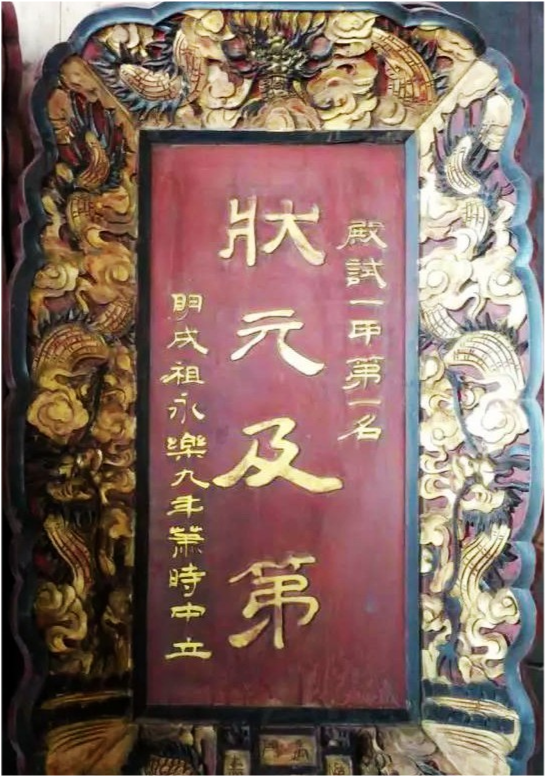 殿試一甲第一名
狀元及第
明成祖永樂九年蕭時中立